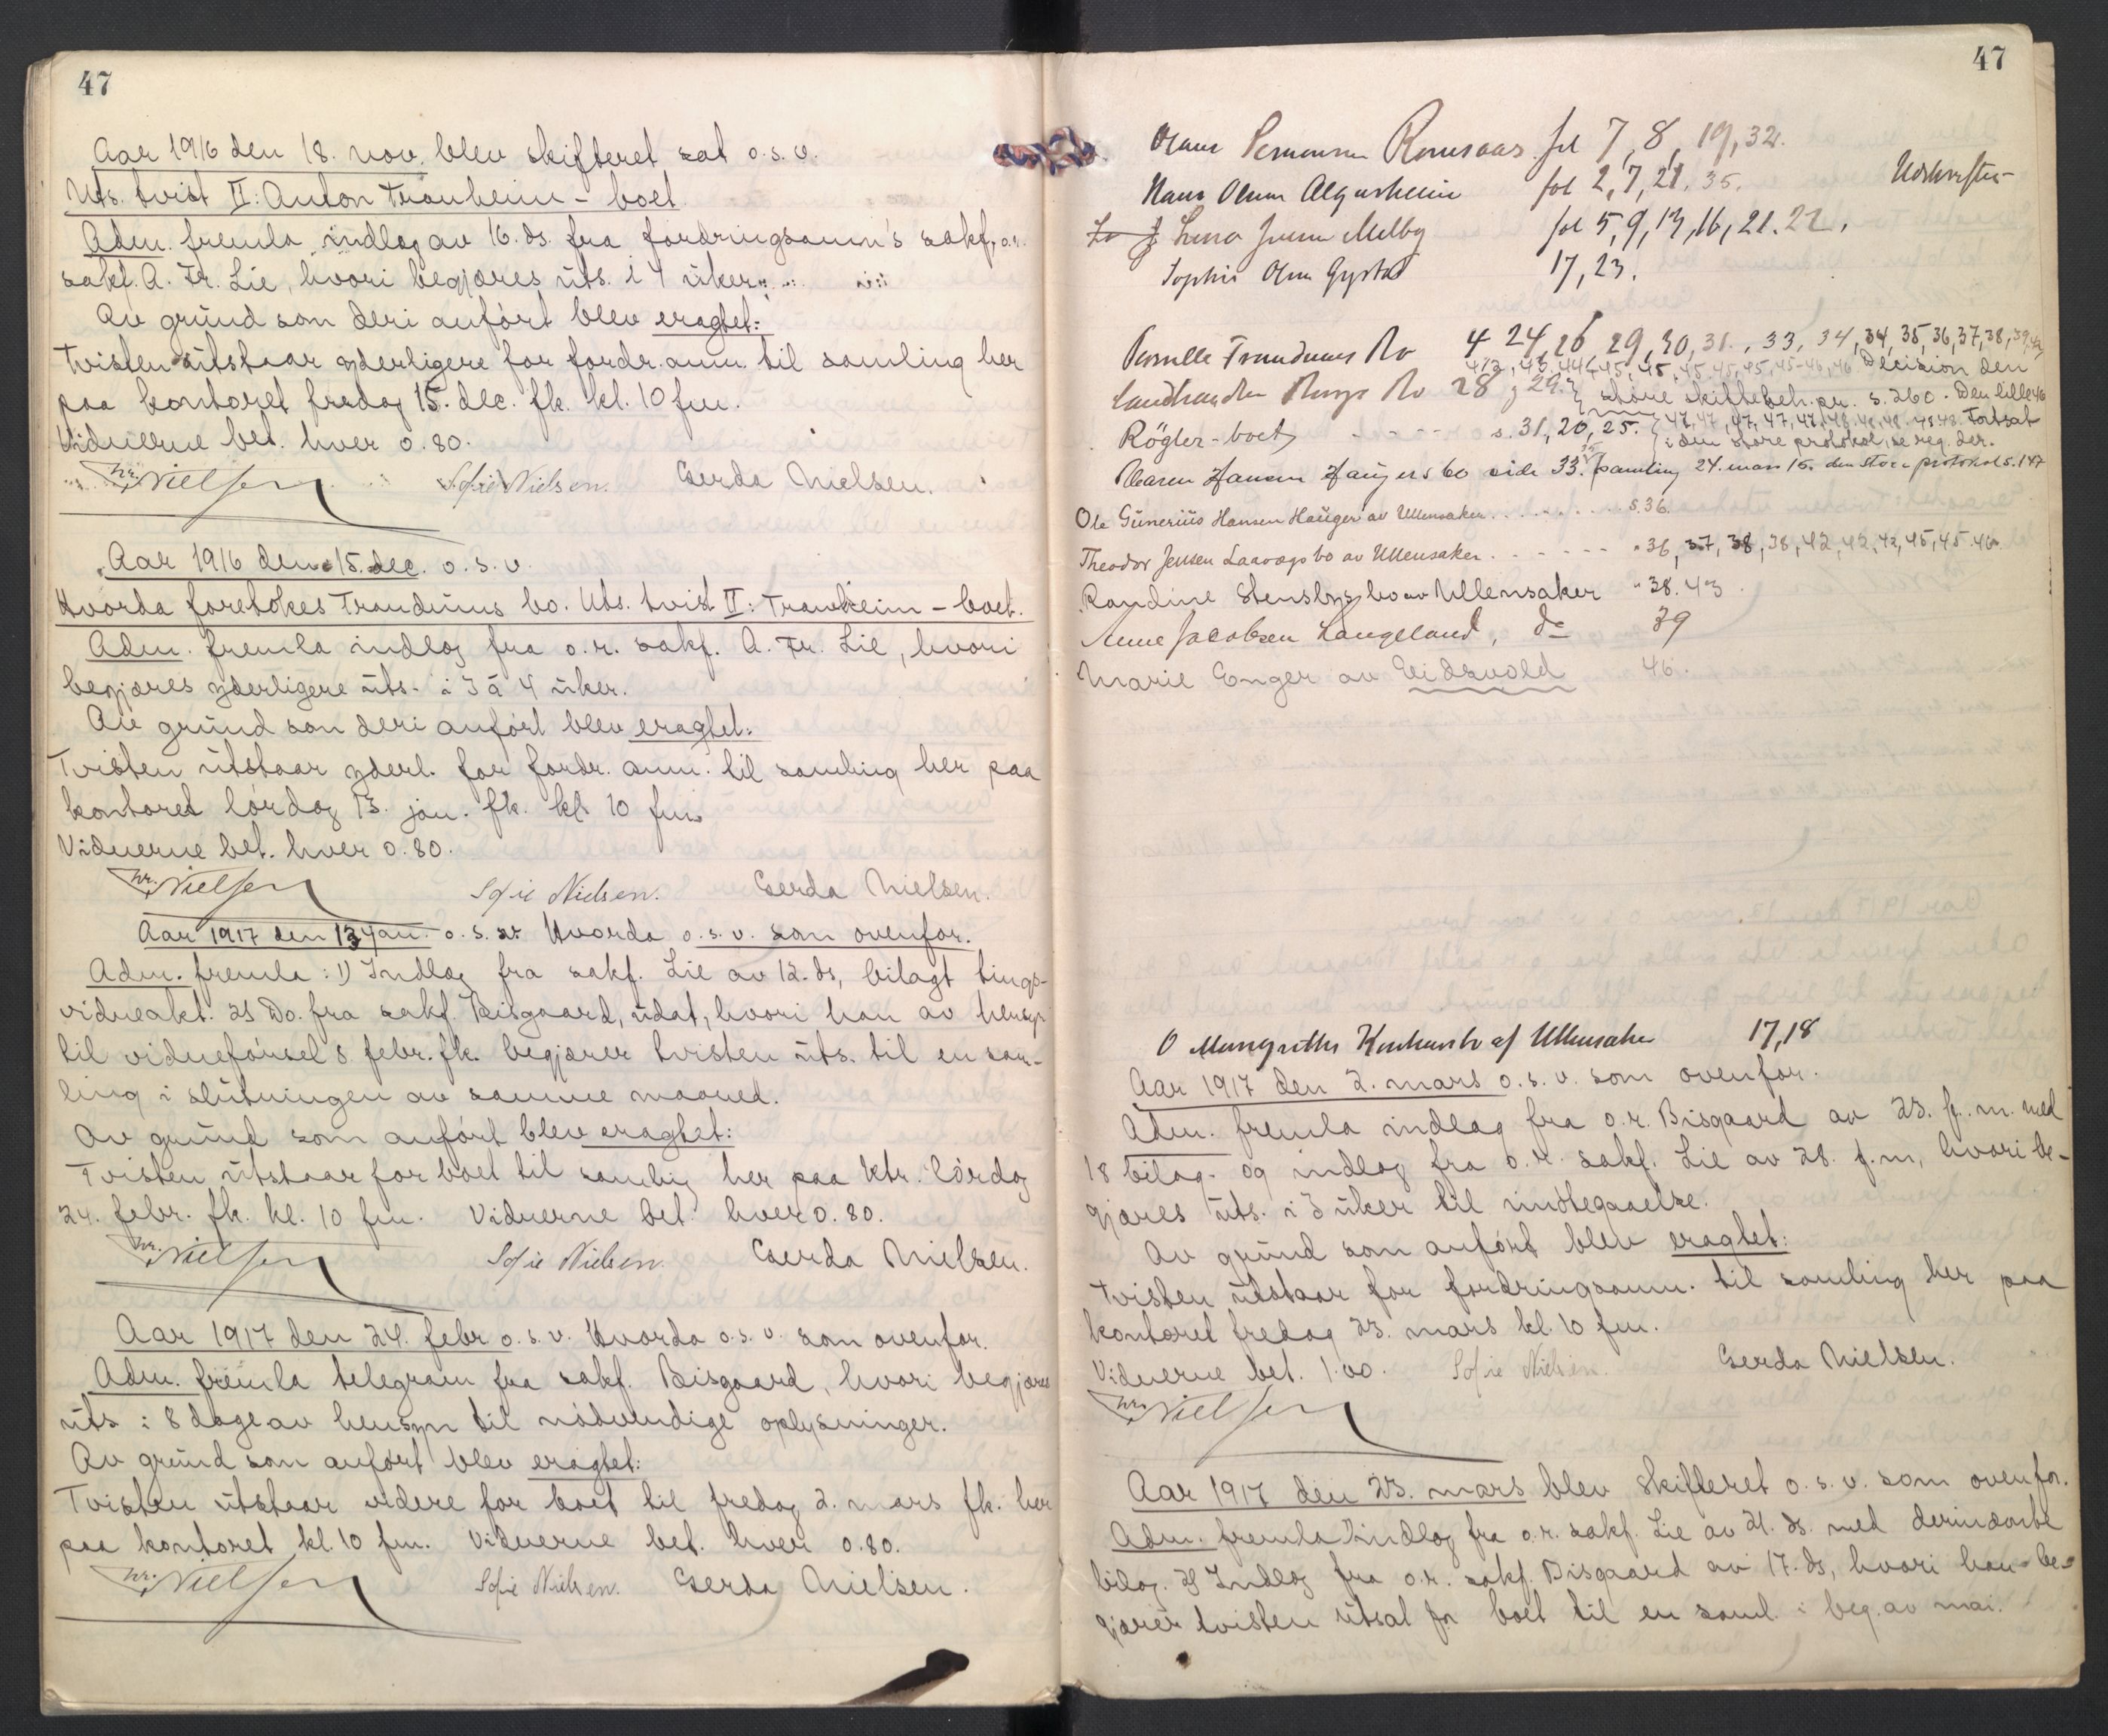 47
Aar 1916 den 18. nov. blev skifteret sat o.s.v.
Uts. tvist II: Anton Trauheim - boet.
Adm. fremla indlæg av 16. ds. fra fordringsanm's sakf, o.r.
sakf. A. Fr. Lie, hvori begjæres uts. i 4 uker.
Av grund som deri anført blev eragtet:
Tvisten utstaar yderligere for fordr. anm. til samling her
paa kontoret fredag 15. dec. fk. kl. 10 fm.
Vidnerne bet. hver 0.80.
Nielsen Sofie Nielsen. Gerda Nielsen.
Aar 1916 den 15. dec. o.s.v.
Hvorda foretokes Trandums bo. Uts. tvist II: Trauheim - boet.
Adm. fremla indlæg fra o.r. sakf. A. Fr. Lie, hvori
begjæres yderligere uts. i 3 à 4 uker.
Av grund som deri anført blev eragtet:
Tvisten utstaar yderl. for fordr. anm. til samling her paa
kontoret lørdag 13. jan. fk. kl. 10 fm.
Vidnerne bet. hver 0.80.
Nielsen Sofie Nielsen. Gerda Nielsen.
Aar 1917 den 13 jan. o.s.v. Hvorda o.s.v. som ovenfor.
Adm. fremla: 1) Indlæg fra sakf. Lie av 12. ds, bilagt tings-
vidneakt. 2) Do. fra sakf. Bisgaard, udat, hvori han av hensyn
til vidneførsel 8 febr. fk. begjærer tvisten uts. til en sam-
ling i slutningen av samme maaned.
Av grund som anført blev eragtet:
Tvisten utstaar for boet til samling her paa ktr. lørdag
24. febr. fk. kl. 10 fm. Vidnerne bet. hver 0.80.
Nielsen Sofie Nielsen. Gerda Nielsen.
Aar 1917 den 24. febr o.s.v. Hvorda o.s.v. som ovenfor.
Adm. fremla telegram fra sakf. Bisgaard, hvori begjæres
uts i 8 dage av hensyn til nødvendige oplysninger.
Av grund som anført blev eragtet:
Tvisten utstaar videre for boet til fredag 2. mars fk. her
paa kontoret kl. 10 fm. Vidnerne bet. hver 0.80.
Nielsen Sofie Nielsen. Gerda Nielsen.
47
Olaus Romsaas fol 7, 8, 19, 32.
Hans Olsen Algarheim fol 2, 7, 21. 35.
Melby fol 5, 9, 13, 16, 21. 22.
Sophie Olsen Gystad 17, 23.
Pernille Trandums Bo 4 24, 26 29, 30, 31., 33, 34, 34, 35, 36, 37, 38, 39,
Decision den
Landhandler Bo 28 og 29. store skiftebeh.pr. s. 260. Den lille 46
Røgler-boet s. 31, 20, 25. 47, 47, 47, 47, 47, Fortsat
i den store protokol, se reg. der.
Maren Hansen Haugers bo side 33. samling 24. mars 15. den store protokol s. 147
Ole Gunerius Hansen Hauger av Ullensaker . . . . . . . s. 36.
Theodor Jensen Laavægs bo av Ullensaker . . . . . . " 36, 37, 38, 38, 42, 42, 42, 45, 45. 46.
Randine Stensbys bo av Ullensaker " 38. 43
Anne Jacobsen Langeland, do 39
Marie Enger av Eidsvold 46.
O Konkursbo af Ullensaker 17, 18
Aar 1917 den 2. mars o.s.v. som ovenfor.
Adm. fremla indlæg fra o.r. Bisgaard av 23. f.m. med
18 bilag. og indlæg fra o.r. sakf. Lie av 28. f.m, hvori be-
gjæres uts. i 3 uker til imøtegaaelse.
Av grund som anført blev eragtet:
Tvisten utstaar for fordringsanm. til samling her paa
kontoret fredag 23. mars kl. 10 fm.
Vidnerne bet. 1.00. Sofie Nielsen. Gerda Nielsen.
Nielsen
Aar 1917 den 23. mars blev skifteret o.s.v. som ovenfor.
Adm. fremla 1) indlæg fra o.r. sakf. Lie av 21. ds. med derindanbt
bilag. 2) Indlæg fra o.r. sakf. Bisgaard av 17. ds, hvori han be-
gjærer tvisten utsat for boet til en saml. i beg. av mai.